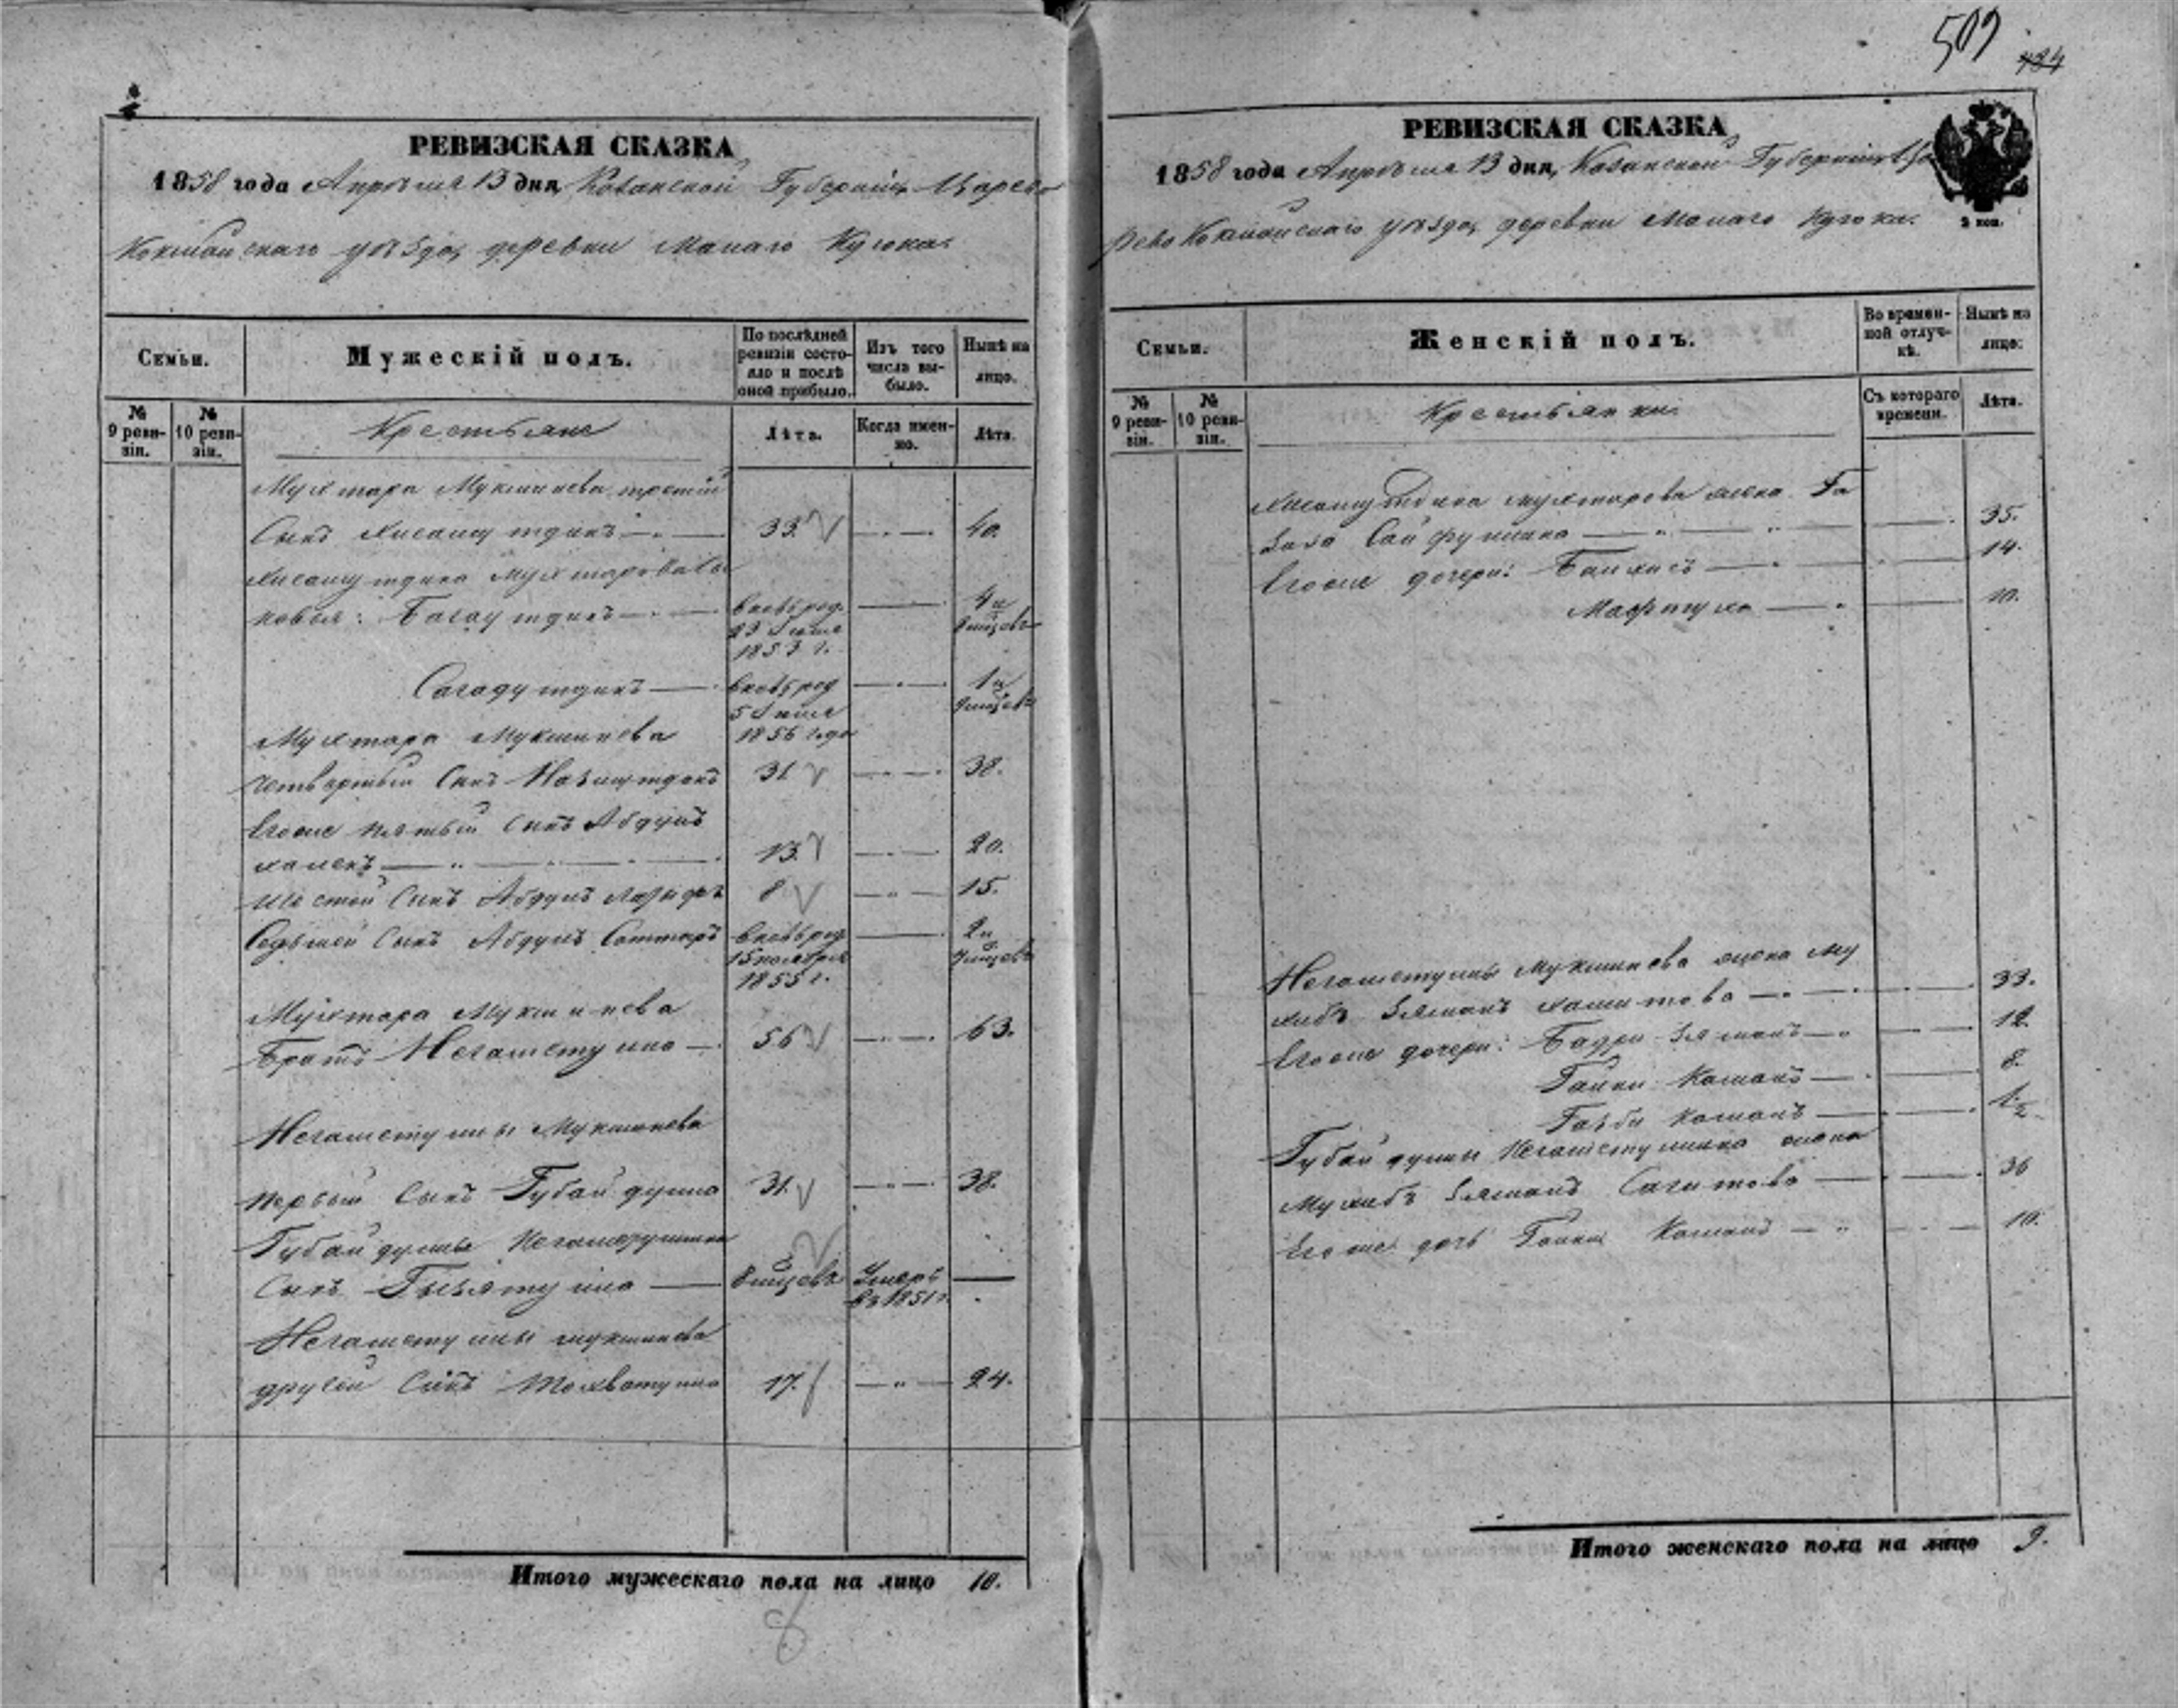 509
484
РЕВИЗСКАЯ СКАЗКА
1858 года Апреля 13 дня, Казанской Губернии, Царево
Кокшайскаго уѣзда, деревни Малаго Кугюка.
Семьи.
Мужескій полъ.
По послѣдней ревизіи состояло и послѣ оной прибыло.
Изъ того числа выбыло.
Нынѣ на лицо.
№ 9 ревизіи.
№ 10 ревизіи.
Крестьяне
Лѣта.
Когда именно.
Лѣта.
Мухтара Мукминева третій
Сынъ Хисамутдинъ 33. 40.
Хисамутдина Мухтарова Сы
новья: Багаутдинъ вновь рож. 4 и
23 Июля 8 мцовъ
1853 г.
Сагадутдинъ вновь рож 1 и
5 Июля 9 мцовъ
1856 года
Мухтара Мукминева
четвертый Сынъ Назмутдинъ 31. 38.
Егоже пятый Сынъ Абдулъ
халекъ 13. 20.
Шестой Сынъ Абдулъ Лазифъ 8 15.
Седьмой Сынъ Абдулъ Саттаръ вновь рож. 2 и
15 ноября мцовъ
1855 г.
Мухтара Мукминева
Братъ Негаметулла 56 63.
Негаметуллы Мукминева
первый Сынъ Губайдулла 31. 38.
Губайдуллы Негаметуллина
Сынъ Гизятулла 8 мцовъ Умеръ
въ 1851 г.
Негаметуллы Мукминева
другой Сынъ 17. 24.
Итого мужескаго пола на лицо 10.
8
РЕВИЗСКАЯ СКАЗКА
1858 года Апреля 13 дня, Казанской Губерніи, Ца
рево Кокшайскаго уѣзда, деревни Малаго Кугюка.
2 коп.
Семьи.
Женскій полъ.
Во временной отлучкѣ.
Нынѣ на лицо.
№ 9 ревизіи.
№ 10 ревизіи.
Крестьянки.
Съ котораго времени.
Лѣта.
Хисамутдина Мухтарова жена Га
зиза Сайфуллина 35.
Егоже дочери: 14.
Мафтуха 10.
Негаметуллы Мукминева жена Му
хибъ Зяманъ 33.
Егоже дочери: Бадри Зяманъ 12.
Гайни Камалъ 8.
Камалъ 1 1/2
Губайдуллы Негаметуллина жена
Мухибъ Зяманъ Сагитова 36
Егоже дочь Гайни Камалъ 10.
Итого женскаго пола на лицо 9.